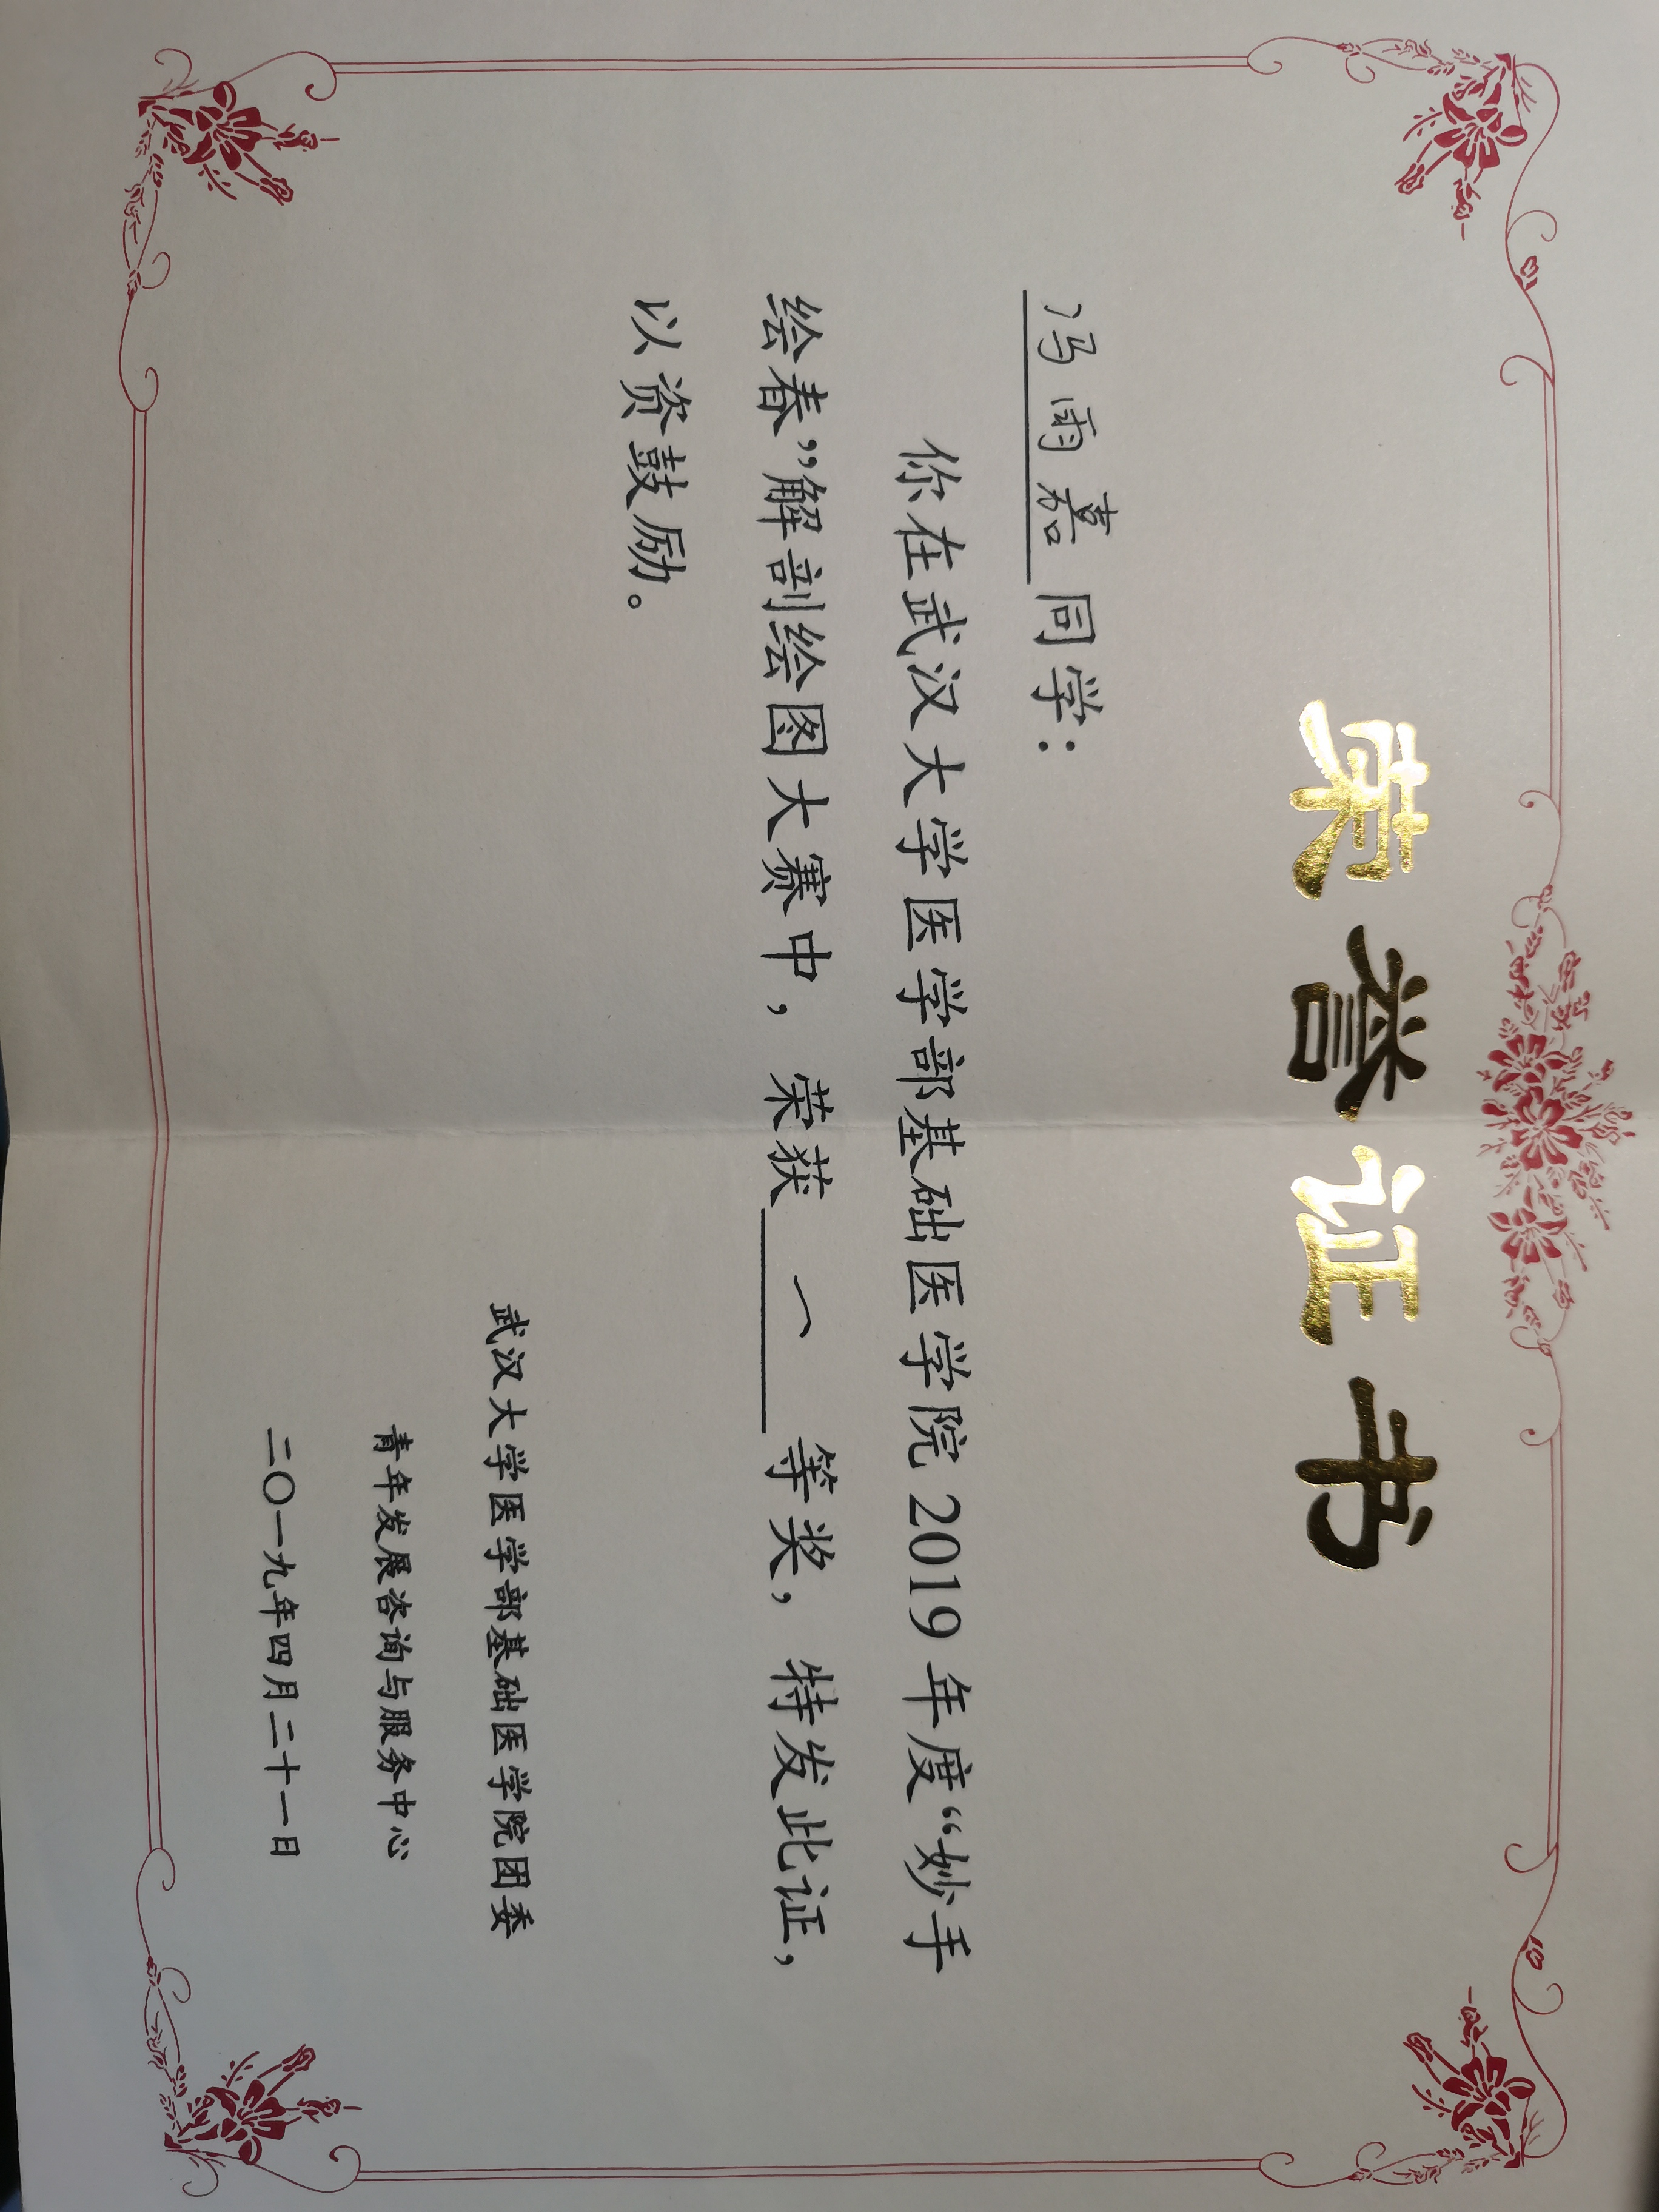 荣誉证书
冯雨嘉同学：
你在武汉大学医学部基础医学院 2019 年度“妙手
绘春”解剖绘图大赛中，荣获 一 等奖，特发此证，
以资鼓励。
武汉大学医学部基础医学院团委
青年发展咨询与服务中心
二〇一九年四月二十一日